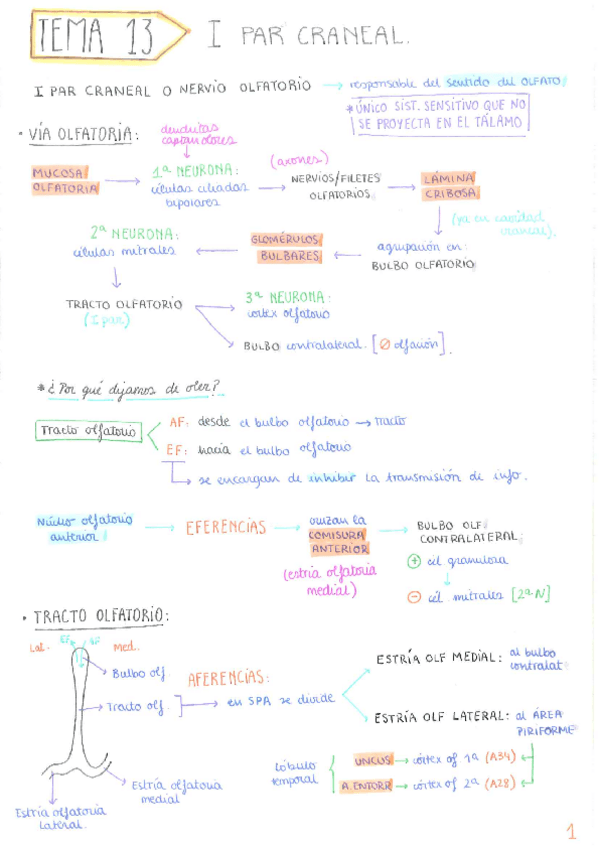 TEMA 13 I PAR CRANEAL.
I PAR CRANEAL O NERVIO OLFATORIO → responsable del sentido del OLFATO
* ÚNICO SIST. SENSITIVO QUE NO
SE PROYECTA EN EL TÁLAMO
· VÍA OLFATORIA:
dendritas
captan olores
MUCOSA
OLFATORIA
1ª NEURONA:
células ciliadas
bipolares
(axones)
NERVIOS/FILETES
OLFATORIOS
LÁMINA
CRIBOSA
(ya en cavidad
craneal).
agrupación en:
BULBO OLFATORIO
GLOMÉRULOS
BULBARES
2ª NEURONA:
células mitrales
TRACTO OLFATORIO
(I par)
3ª NEURONA:
cortex olfatorio
BULBO contralateral. [∅ olfación].
* ¿Por qué dejamos de oler?
Tracto olfatorio
AF: desde el bulbo olfatorio → tracto
EF: hacia el bulbo olfatorio
se encargan de inhibir la transmisión de info.
Núcleo olfatorio
anterior
EFERENCIAS
cruzan la
COMISURA
ANTERIOR
(estría olfatoria
medial)
BULBO OLF
CONTRALATERAL:
+ cél granulosa
- cél mitrales [2ªN]
· TRACTO OLFATORIO:
Lat. EF AF Med.
Bulbo olf.
Tracto olf.
Estría olfatoria
medial
Estría olfatoria
lateral.
AFERENCIAS:
en SPA se divide
ESTRÍA OLF MEDIAL: al bulbo
contralat
ESTRÍA OLF LATERAL: al ÁREA
PIRIFORME
Lóbulo
temporal
UNCUS → córtex olf 1ª (A34)
A. ENTORR → córtex olf 2ª (A28)
1